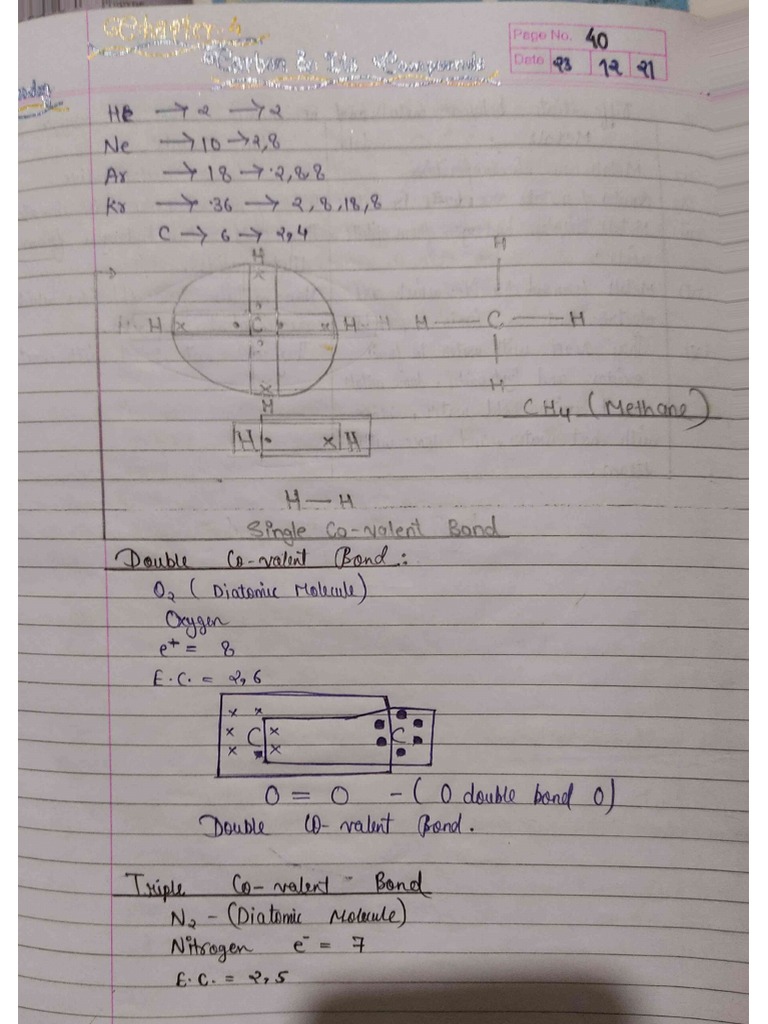 Chapter 4
Carbon & Its Compounds
Page No. 40
Date 23 12 21
He → 2 → 2
Ne → 10 → 2,8
Ar → 18 → 2,8,8
Kr → 36 → 2,8,18,8
C → 6 → 2,4
H
x
H x • C • x H
x
H
H
H — C — H
H
CH4 (Methane)
H • x H
H — H
Single Co-valent Bond
Double Co-valent Bond :
O2 ( Diatomic Molecule)
Oxygen
e+ = 8
E.C. = 2,6
x x
x C x C
x x
O = O - ( O double bond O)
Double Co-valent Bond.
Triple Co-valent - Bond
N2 - (Diatomic Molecule)
Nitrogen e- = 7
E.C. = 2,5